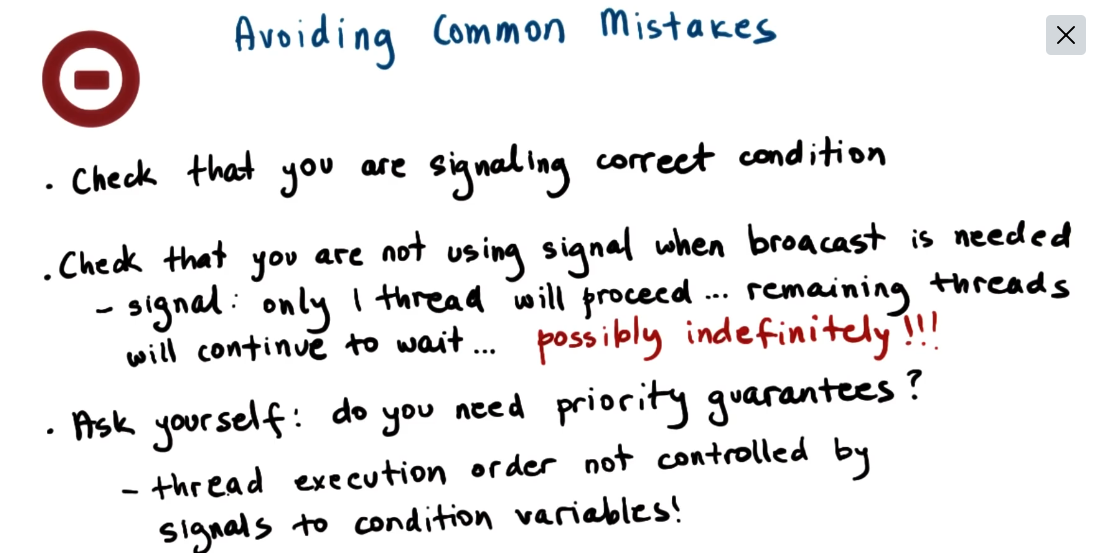 Avoiding Common Mistakes
. Check that you are signaling correct condition
. Check that you are not using signal when broacast is needed
- signal: only 1 thread will proceed ... remaining threads
will continue to wait ... possibly indefinitely!!!
. Ask yourself: do you need priority guarantees?
- thread execution order not controlled by
signals to condition variables!